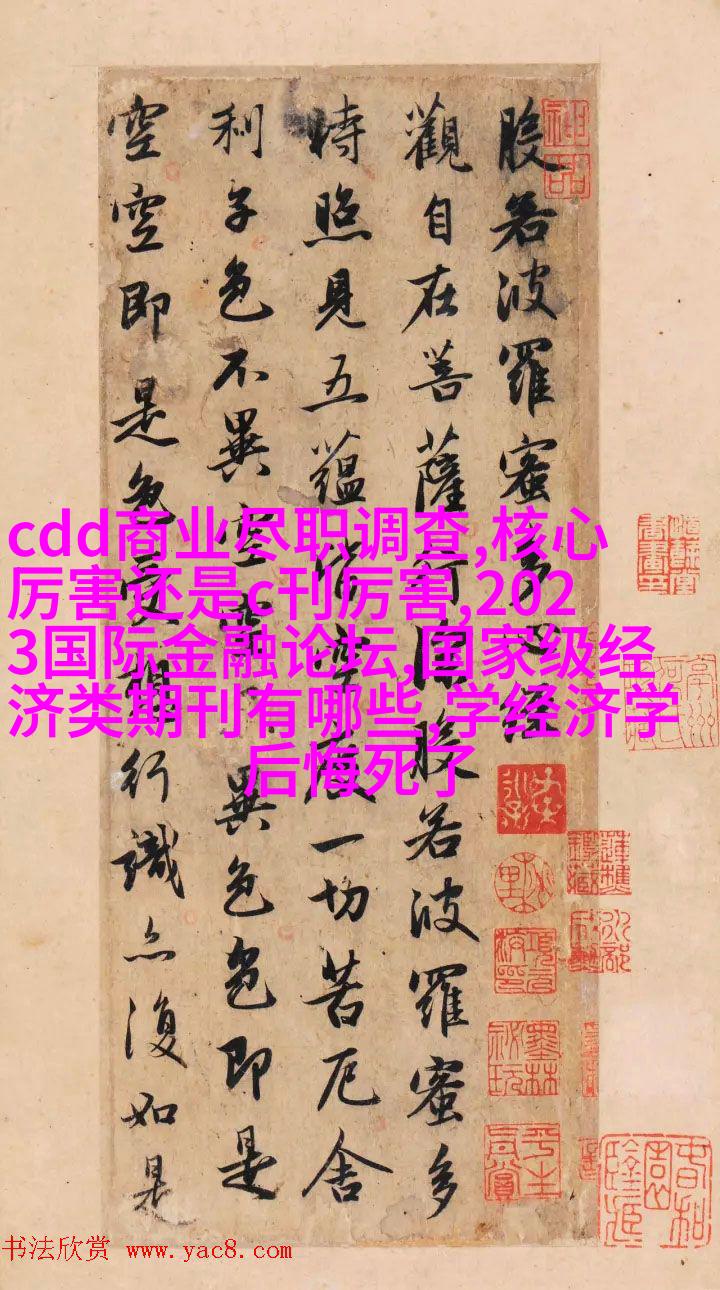 般若波羅蜜多心經
觀自在菩薩行深般若波羅蜜多
時照見五蘊皆空度一切苦厄舍
利子色不異空空不異色色即是
空空即是色受想行識亦復如是
cdd商业尽职调查,核心
厉害还是c刊厉害,202
3国际金融论坛,国家级经
济类期刊有哪些,学经济学
后悔死了
神品
墨林
秘玩
书法欣赏 www.yac8.com